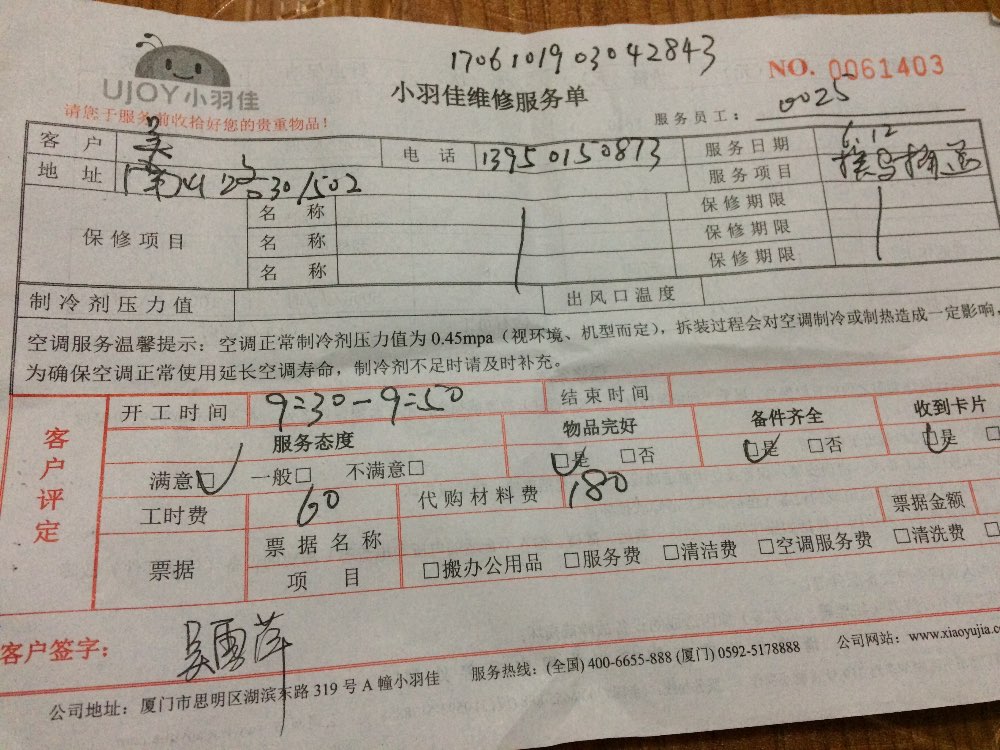 1706101903042843
NO. 0061403
UJOY小羽佳
小羽佳维修服务单
请您于服务前收拾好您的贵重物品！
服务员工： 0025
客户 吴 电话 13950150873 服务日期 6.12
地址 302/502 服务项目
保修项目 名称 保修期限
名称 保修期限
名称 保修期限
制冷剂压力值 出风口温度
空调服务温馨提示：空调正常制冷剂压力值为 0.45mpa（视环境、机型而定），拆装过程会对空调制冷或制热造成一定影响，
为确保空调正常使用延长空调寿命，制冷剂不足时请及时补充。
客户评定
开工时间 9:30-9:50 结束时间
服务态度 物品完好 备件齐全 收到卡片
满意□ 一般□ 不满意□ □是 □否 □是 □否 □是 □
工时费 60 代购材料费 180 票据金额
票据 票据名称
项目 □搬办公用品 □服务费 □清洁费 □空调服务费 □清洗费 □
客户签字： 吴雪萍
公司地址：厦门市思明区湖滨东路 319 号 A 幢小羽佳 服务热线：(全国) 400-6655-888 (厦门) 0592-5178888 公司网站：www.xiaoyujia.co